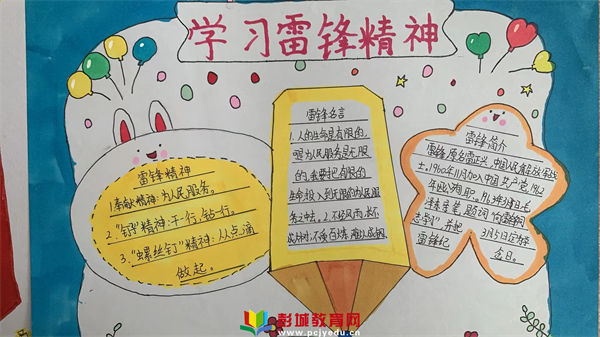 学习雷锋精神
雷锋精神
1.奉献精神:为人民服务。
2."钉子"精神:干一行,钻一行。
3."螺丝钉"精神:从点滴
做起。
雷锋名言
1.人的生命是有限的,
可为人民服务是无限
的,我要把有限的
生命,投入到无限的为人民服
务之中去。2.不经风雨,长不
成大树;不受百炼,难以成钢
雷锋简介
雷锋,原名雷正兴,中国人民解放军战
士,1960年11月加入中国共产党,1962
年因公殉职。1963年3月5日毛
泽东笔题词"向雷锋同
志学习"并把3月5日定为学
雷锋纪念日。
彭城教育网
www.pcjyedu.cn